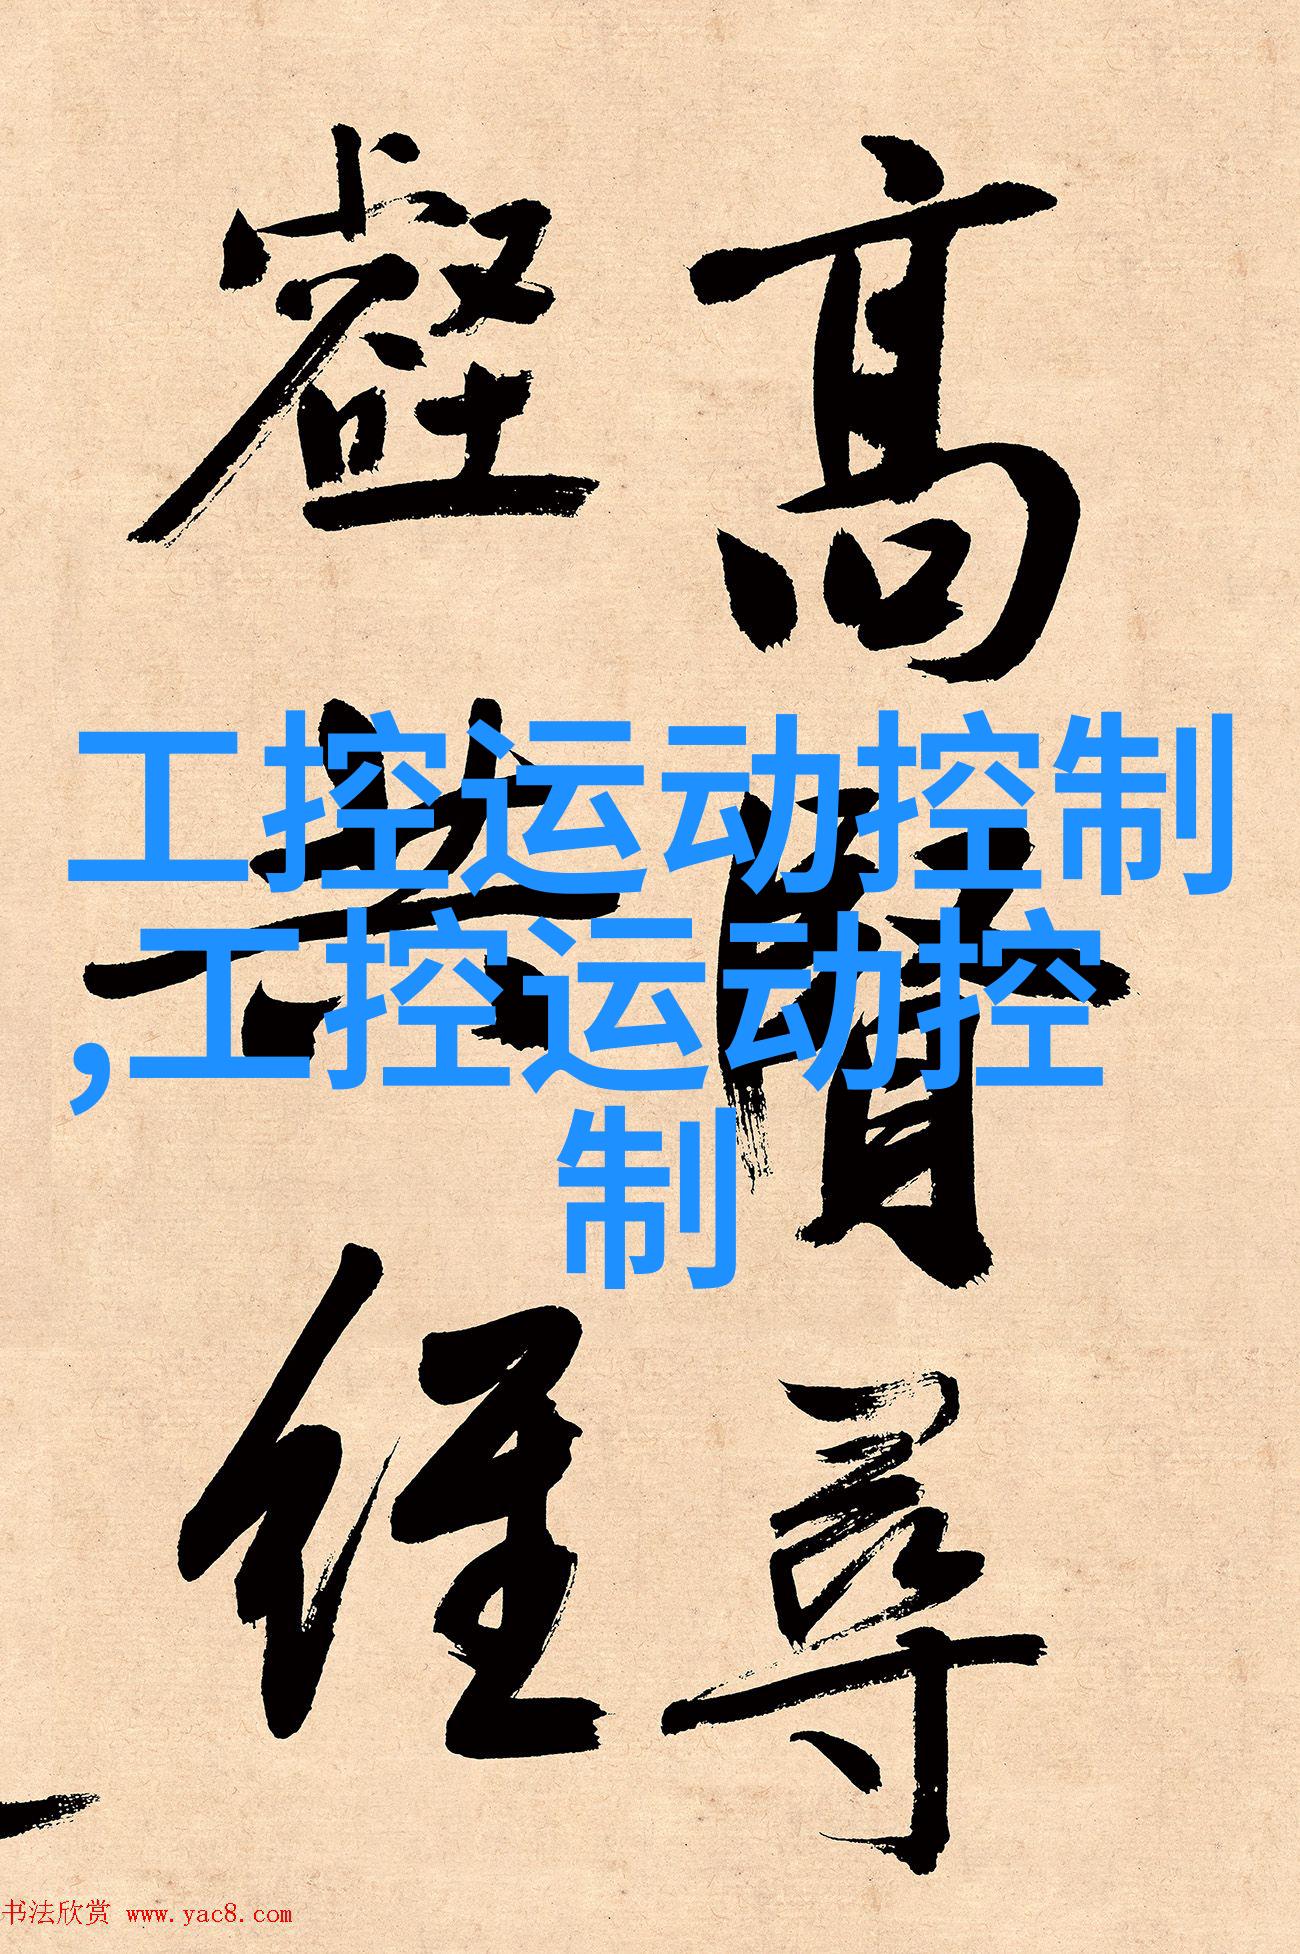 高賢尋
壑共經
工控运动控制
,工控运动控
制
书法欣赏 www.yac8.com